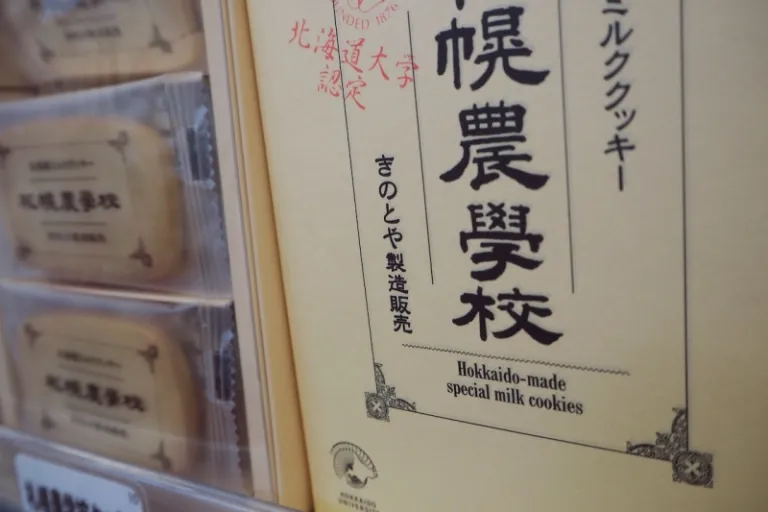 UNDED 1876
北海道大学
認定
ミルククッキー
幌農學校
きのとや製造販売
Hokkaido-made
special milk cookies
HOKKAIDO
UNIVERSITY
札幌農學校
札幌農學校